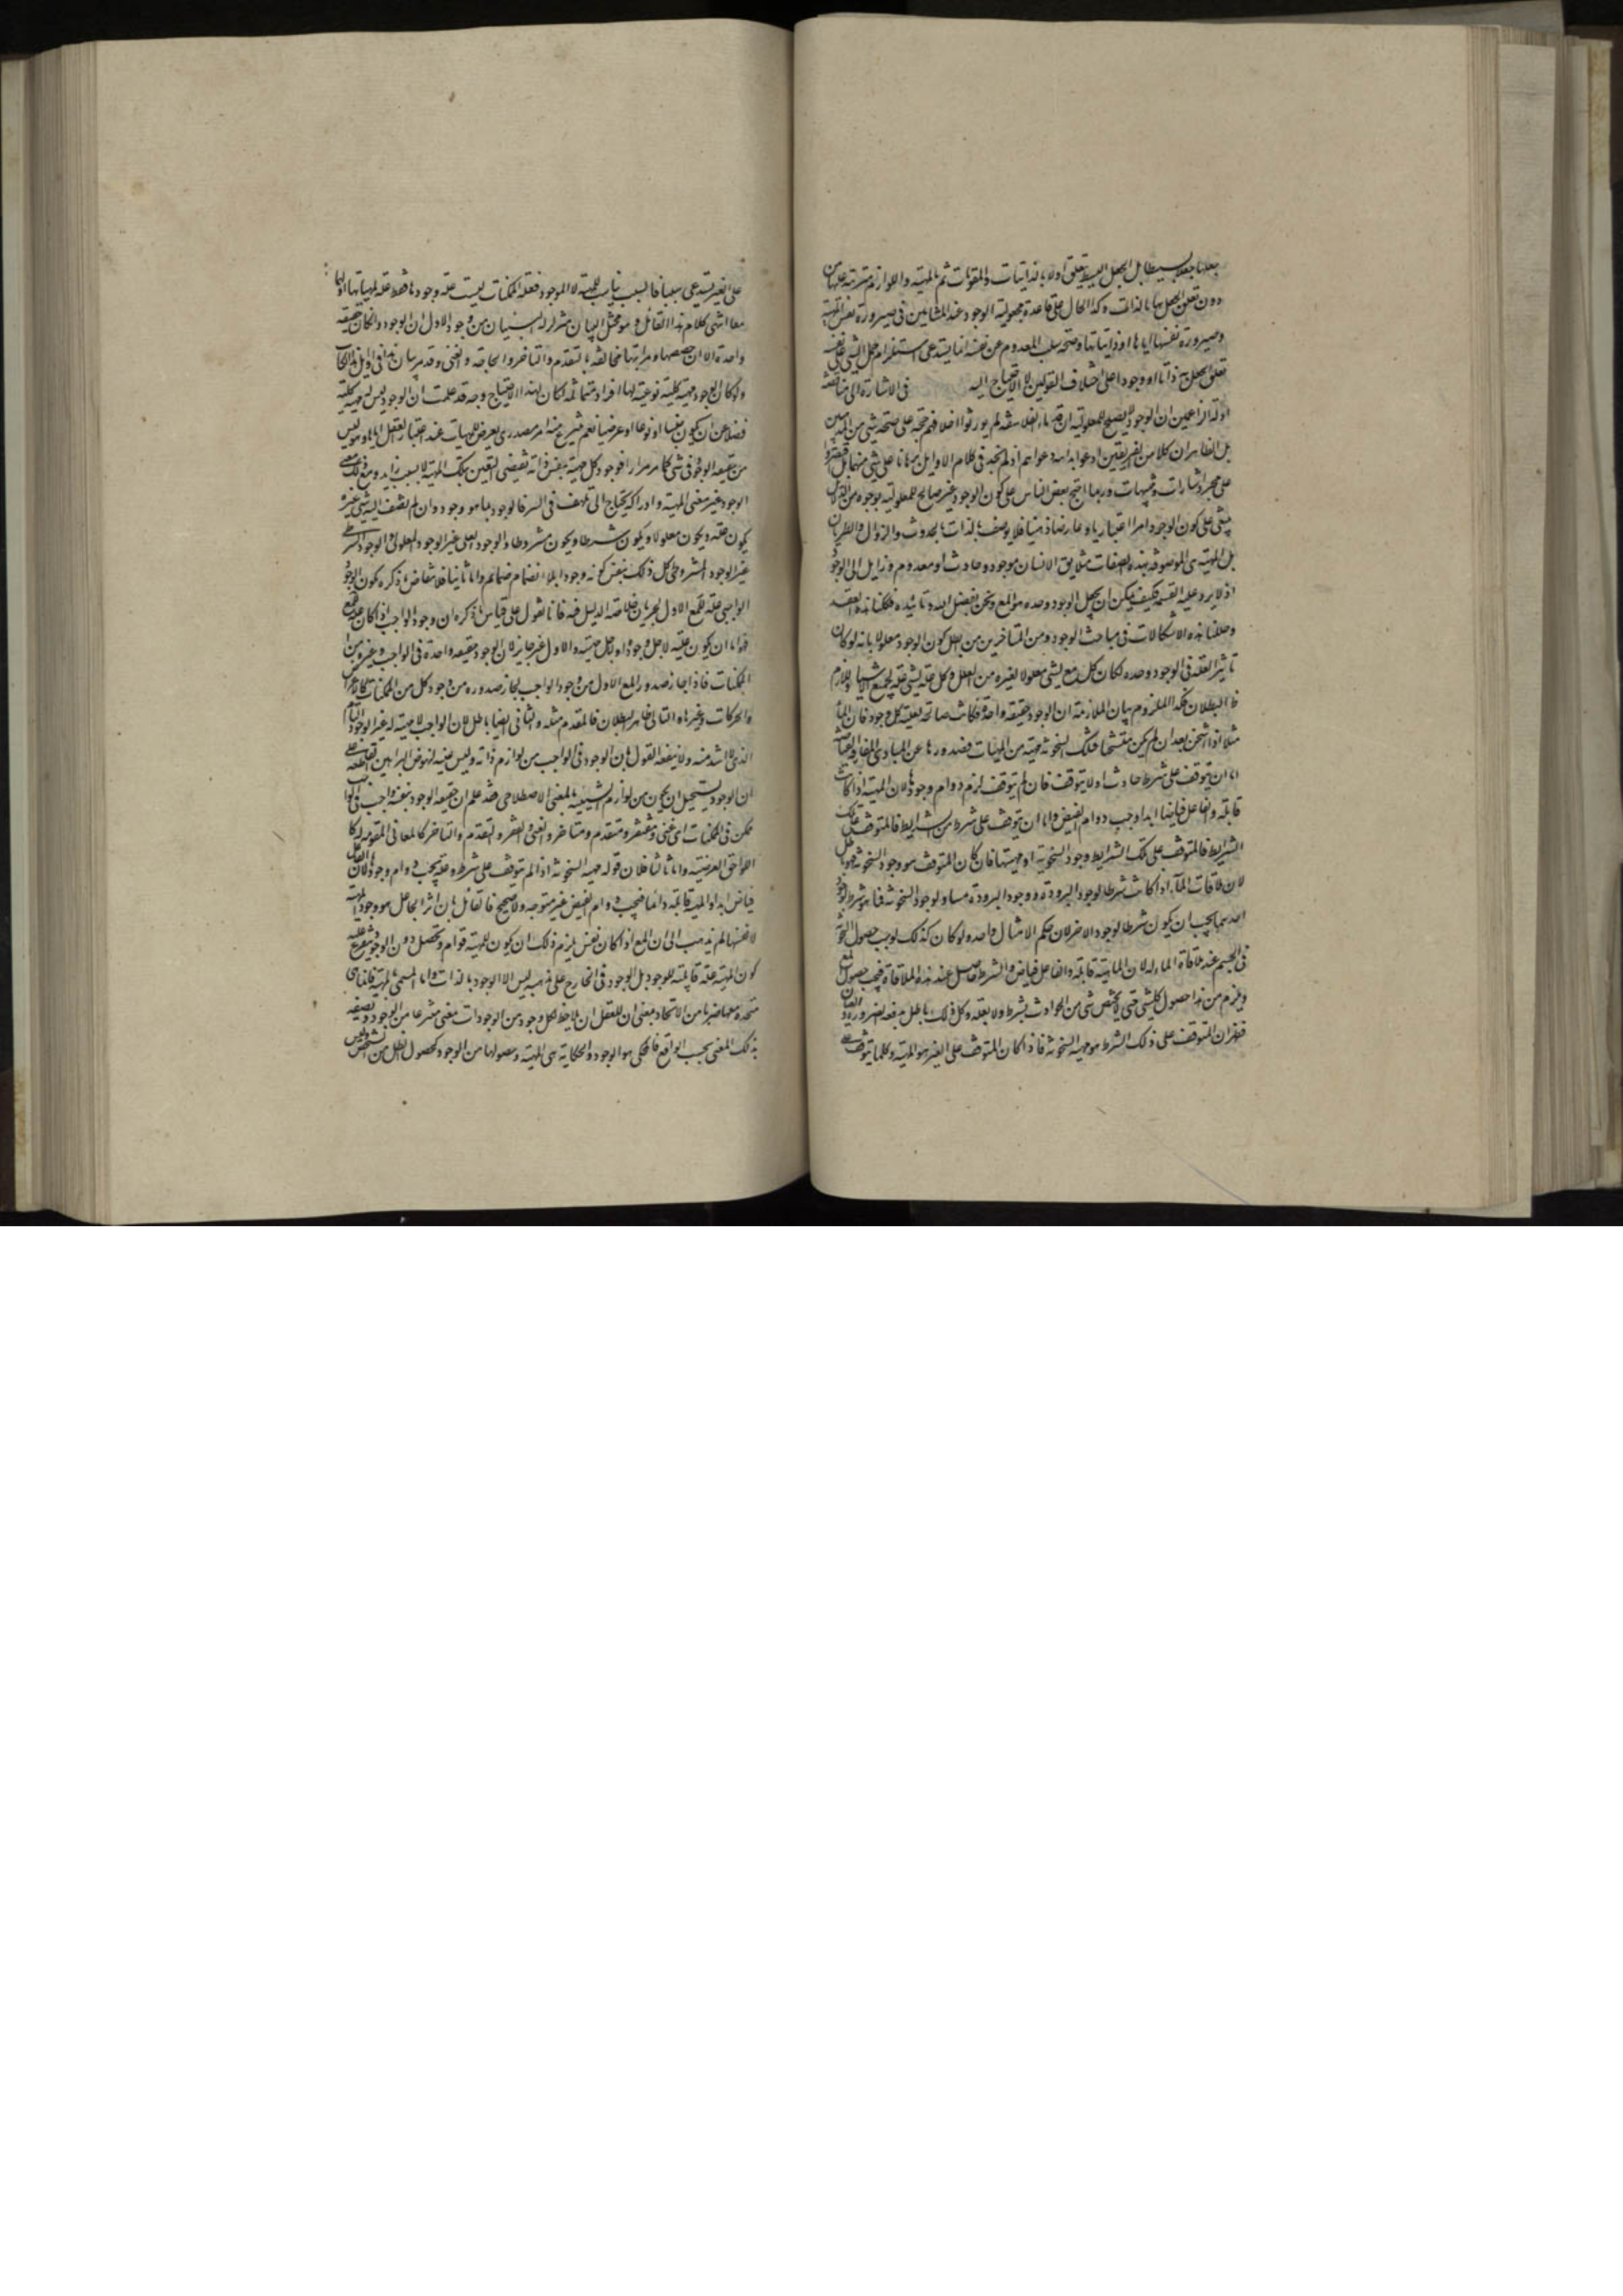 جعلها جعلا بسيطا بل الجعل البسيط يتعلق اولا بالذاتيات والمقومات ثم بالمهية واللوازم مترتبة عليها من
دون تعلق الجعل بها بالذات وكذا الحال على قاعدة مجعولية الوجود عند المشايين في صيرورة نفس المهية
وصيرورة نفسها اياها او ذاتياتها وصحة سلب المعدوم عن نفسه انما يستدعى استلزام حمل الشي على نفسه
تعلق الجعل به ذاتا او وجودا على اختلاف القولين لا الاحتياج اليه في الاشارة الى مناقضة
ادلة الزاعمين ان الوجود لا يصلح للمعلولية ان قدماء الفلاسفة لم يورثوا اخلافهم حجة على صحة شي من المذهبين
بل الظاهر ان كلا من الفريقين ادعوا بداهة دعواهم اذ لم نجد في كلام الاوايل برهانا على شي منهما بل اقتصروا
على مجرد اشارات وتنبيهات وربما احتج بعض الناس على كون الوجود غير صالح للمعلولية بوجوه من الدلايل
يبتنى على كون الوجود امرا اعتباريا وعارضا ذهنيا فلا يوصف بالذات بالحدوث والزوال والطريان
بل المهية هي الموصوفة بهذه الصفات مثلا يق الانسان موجود وحادث او معدوم وزايل الى الوجود
اذ لا يرد عليه القسمة فكيف يمكن ان يجعل الوجود وحده هو المع ونحن بفضل الله وتائيده فككنا هذه العقد
وحللنا هذه الاشكالات في مباحث الوجود ومن المتاخرين من ابطل كون الوجود معلولا بانه لو كان
تاثير العلة في الوجود وحده لكان كل مع لشي معلولا لغيره من العلل وكل علة لشي علة لجميع الاشيا واللازم
ظ البطلان فكذا الملزوم بيان الملازمة ان الوجود حقيقة واحدة فكانت صالحة لعلية كل وجود فان الماء
مثلا اذا اسخن بعد ان لم يكن متسخنا فتلك السخونة مهية من المهيات فصدورها عن المبادى المفارقة الفياضة
اما ان يتوقف على شرط حادث او لا يتوقف فان لم يتوقف لزم دوام وجودها لان المهية اذا كانت
قابلة والفاعل فياضا ابدا وجب دوام الفيض واما ان يتوقف على شرط من الشرايط فالمتوقف على تلك
الشرايط فالمتوقف على تلك الشرايط وجود السخونة او مهيتها فان كان المتوقف هو وجود السخونة فهو باطل
لان ملاقات الماء اذا كانت شرطا لوجود البرودة ووجود البرودة مساو لوجود السخونة فما هو شرط لوجود
احدهما يجب ان يكون شرطا لوجود الاخر لان حكم الامثال واحد ولو كان كذلك لوجب حصول السخونة
في الجسم عند ملاقاة الماء له لان الماهية قابلة والفاعل فياض والشرط حاصل عند هذه الملاقاة فيجب حصول المع
ويلزم من هذا حصول كل شي حتى لا يختص شي من الحوادث بشرط ولا بعلة وكل ذلك باطل يدفعه الضرورة والعيان
فظهر ان المتوقف على ذلك الشرط هو مهية السخونة فاذا كان المتوقف على الغير هو المهية وكلما يتوقف
على الغير يستدعى سببا فالسبب سبب للمهية لا الموجود فعلة الممكنات ليست علة وجودها فقط علة لمهياتها او لهما
معا انتهى كلام هذا القائل وهو مختل البيان متزلزل البنيان من وجوه الاول ان الوجود وان كان حقيقة
واحدة الا ان حصصها ومراتبها متخالفة بالتقدم والتاخر والحاجة والغنى وقد مر بيان هذا في اوايل هذا الكتاب
ولو كان الوجود مهية كلية نوعية لها افراد متماثلة لكان لهذا الاحتياج وجه قد علمت ان الوجود ليس له مهية كلية
فضلا عن ان يكون جنسا او نوعا او عرضيا نعم ينتزع منه امر مصدرى يعرض للمهيات عند اعتبار العقل اياها وهو ليس
من حقيقة الوجود في شي كما مر مرارا فوجود كل مهية بنفس ذاته تقتضى التعين بتلك المهية لا بسبب زايد ومع ذلك معنى
الوجود غير معنى المهية وادراكه يحتاج الى تلطف في السر فالوجود بما هو وجود وان لم يضف اليه شي غيره
يكون علة ويكون معلولا ويكون شرطا ويكون مشروطا والوجود العلى غير الوجود المعلولى والوجود الشرطى
غير الوجود المشروطى كل ذلك بنفس كونه وجودا بلا انضمام ضمائم واما ثانيا فلانتقاض ما ذكره بكون الوجود
الواجبى علة للمع الاول بجريان خلاصة الدليل فيه فانا نقول على قياس ما ذكره ان وجود الواجب اذا كان علة لمع
فهو اما ان يكون علية لاجل وجوده او لاجل مهيته والاول غير جايز لان الوجود حقيقة واحدة في الواجب وغيره من
الممكنات فاذا جاز صدور المع الاول من وجود الواجب لجاز صدوره من وجود كل من الممكنات كالاعراض
والحركات وغيرها والتالى ظاهر البطلان فالمقدم مثله والثانى ايضا باطل لان الواجب لا مهية له غير الوجود التام
الذى لا اشد منه ولا ينفعه القول بان الوجود في الواجب من لوازم ذاته وليس عينه لنهوض البراهين القاطعة على
ان الوجود يستحيل ان يكون من لوازم الشيئية بالمعنى الاصطلاحى فقد علم ان حقيقة الوجود بنفسه واجب في الواجب
ممكن في الممكنات اى غنى ومفتقر ومتقدم ومتاخر والغنى والفقر والتقدم والتاخر كالمعانى المقومة له كا
اللواحق العرضية واما ثالثا فلان قوله مهية السخونة اذا لم يتوقف على شرط وعلة يجب دوام وجودها لان الفاعل
فياض ابدا والمهية قابلة دائما فيجب دوام الفيض غير متوجه ولا صحيح فالقائل بان اثر الجاعل هو وجود المهية
لا نفسها لم يذهب الى ان المع اذا كان نفس يلزم ذلك ان يكون للمهية قوام وتحصل دون الوجود متفرع عليه
كون المهية علة قابلية للوجود بل الوجود في الخارج على مذهبه ليس الا الوجود بالذات واما المسمى بالمهية فانما هي
متحدة معها ضربا من الاتحاد بمعنى ان للعقل ان يلاحظ لكل وجود من الوجودات معنى منتزعا من الوجود ويصفه
بذلك المعنى بحسب الواقع فالمحكى هو الوجود والحكاية هي المهية وحصولها من الوجود كحصول الظل من الشخص وليس